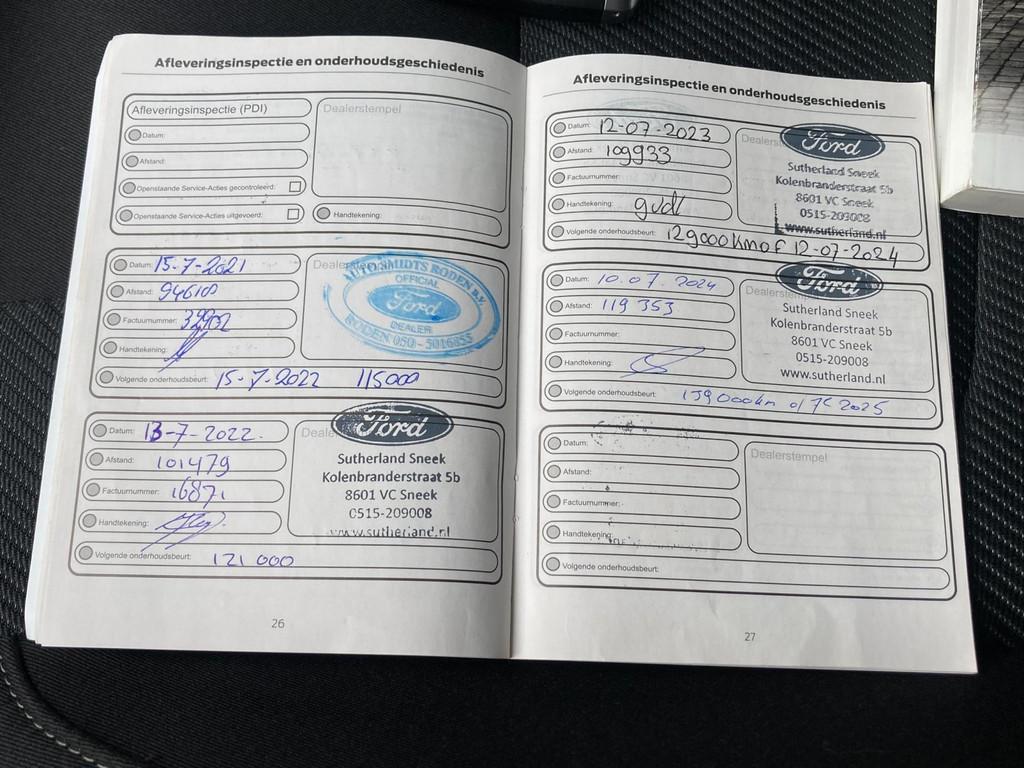 Afleveringsinspectie en onderhoudsgeschiedenis
Afleveringsinspectie (PDI)
Dealerstempel
Datum:
Afstand:
Openstaande Service-Acties gecontroleerd:
Openstaande Service-Acties uitgevoerd:
Handtekening:
Datum: 15-7-2021
Afstand:
Factuurnummer:
Handtekening:
AUTO SMIDTS RODEN B.V.
OFFICIAL
Ford
DEALER
RODEN 050 - 5016855
Volgende onderhoudsbeurt: 15-7-2022 115000
Datum: 13-7-2022.
Afstand: 101479
Factuurnummer: 16871
Handtekening:
Ford
Sutherland Sneek
Kolenbranderstraat 5b
8601 VC Sneek
0515-209008
www.sutherland.nl
Volgende onderhoudsbeurt: 121 000
26
Afleveringsinspectie en onderhoudsgeschiedenis
Datum: 12-07-2023
Afstand: 109933
Factuurnummer:
Handtekening: gvdl
Ford
Sutherland Sneek
Kolenbranderstraat 5b
8601 VC Sneek
0515-209008
www.sutherland.nl
Volgende onderhoudsbeurt: 129000km of 12-07-2024
Datum: 10.07.2024
Afstand: 119 353
Factuurnummer:
Handtekening:
Ford
Sutherland Sneek
Kolenbranderstraat 5b
8601 VC Sneek
0515-209008
www.sutherland.nl
Volgende onderhoudsbeurt: 139 000km 2025
Datum:
Afstand:
Factuurnummer:
Handtekening:
Dealerstempel
Volgende onderhoudsbeurt:
27